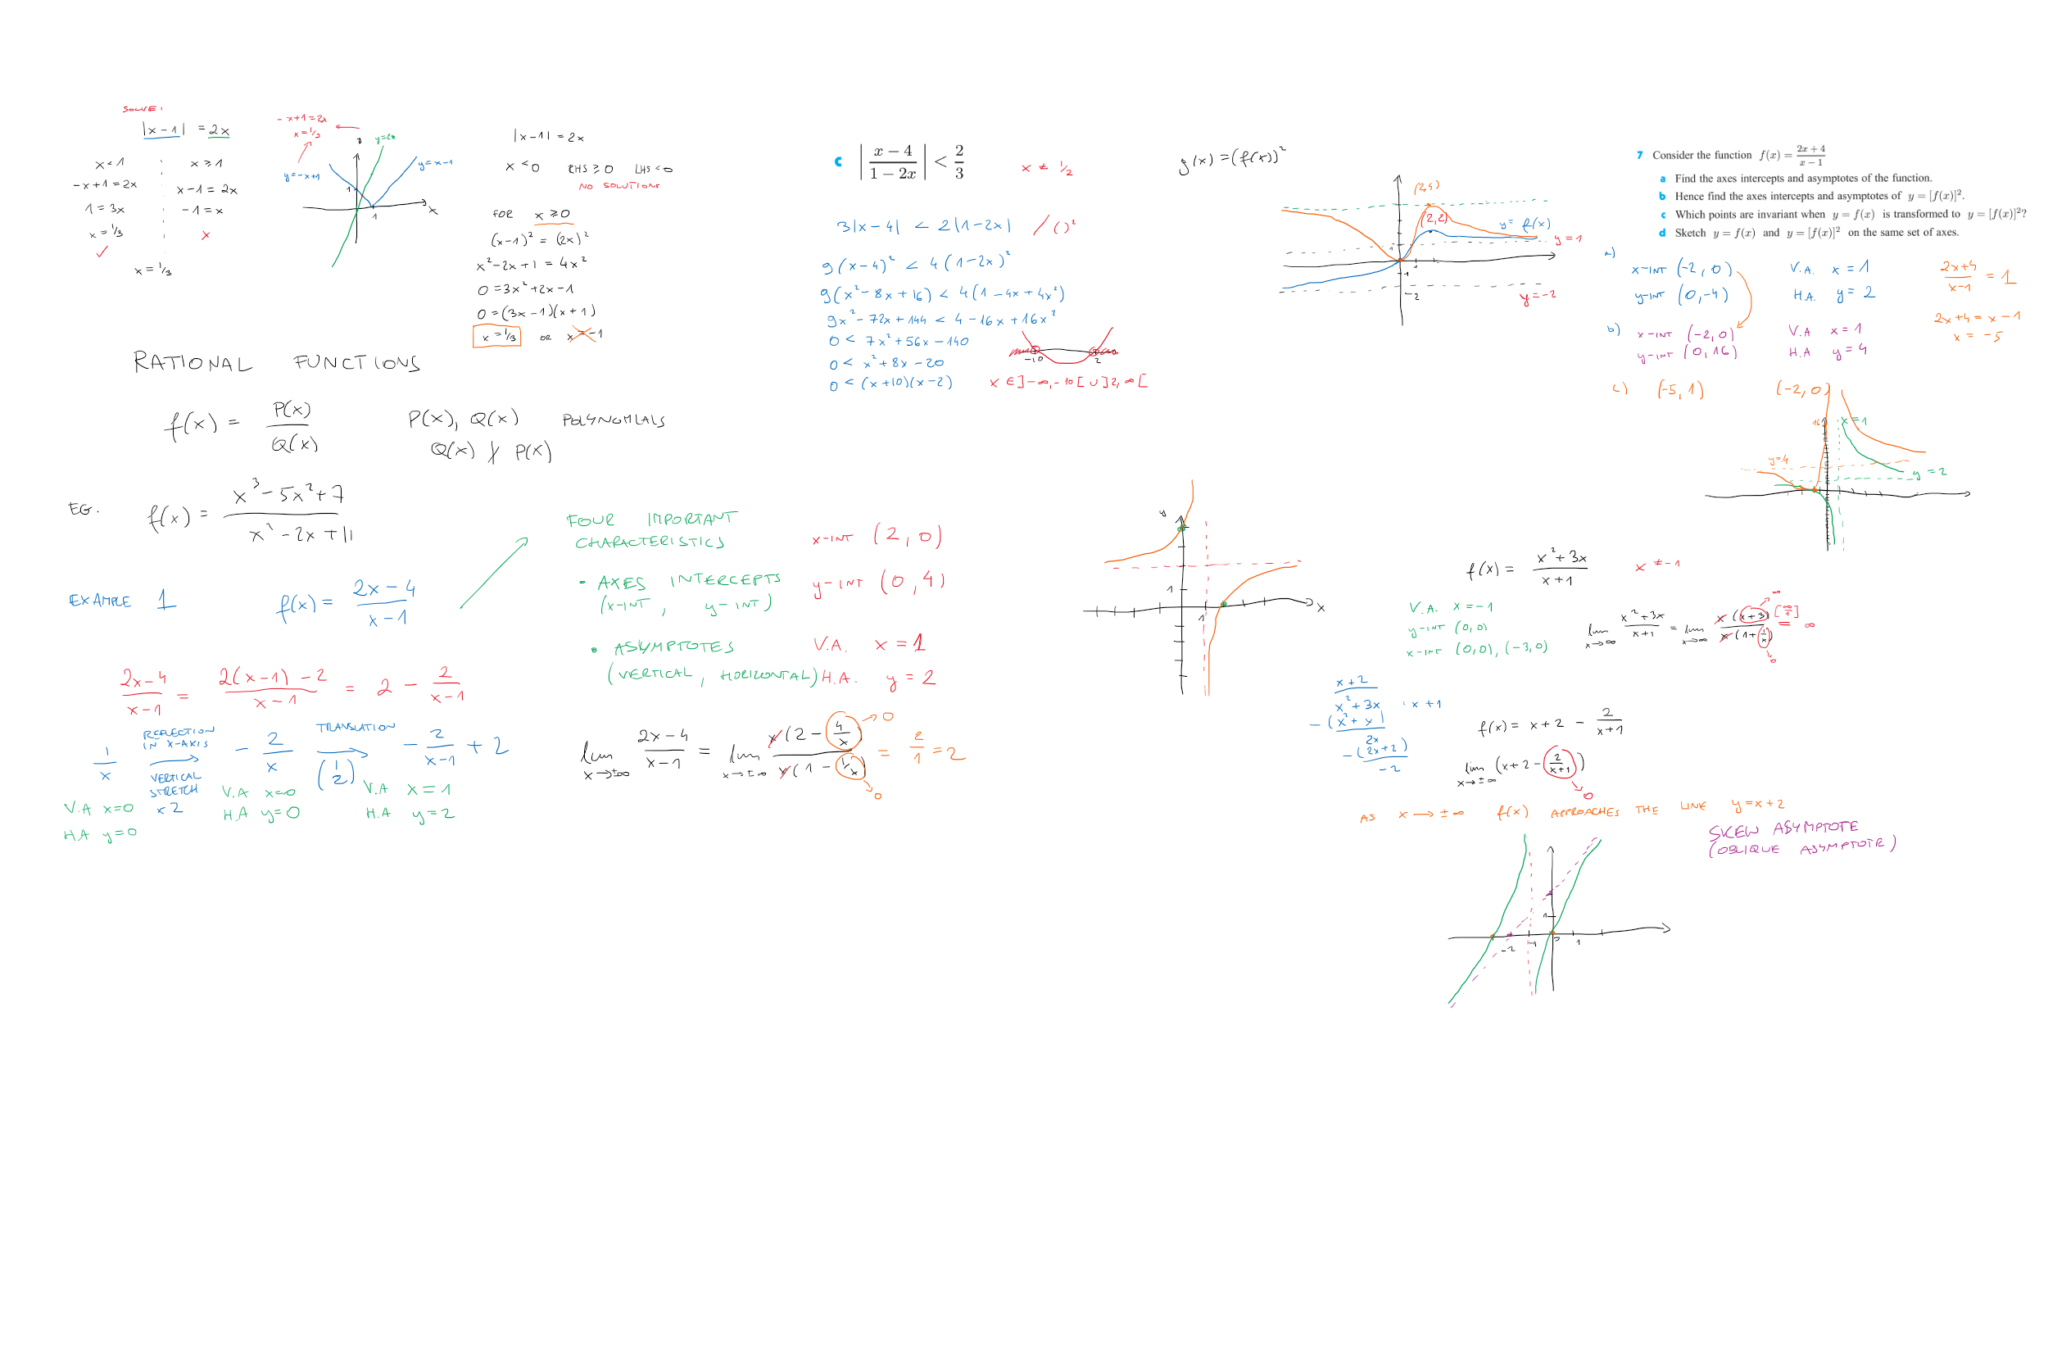 SOLVE:
|x-1| = 2x
x<1
x≥1
-x+1=2x
x-1=2x
1=3x
-1=x
x=1/3
✓
x
x=1/3
-x+1=2x
x=1/3
y=2x
y=x-1
y=-x+1
1
1
x
|x-1|=2x
x<0 RHS≥0 LHS<0
NO SOLUTIONS
FOR x≥0
(x-1)²=(2x)²
x²-2x+1=4x²
0=3x²+2x-1
0=(3x-1)(x+1)
x=1/3 OR x=-1
c |(x-4)/(1-2x)| < 2/3
x≠1/2
3|x-4| < 2|1-2x| /()²
9(x-4)² < 4(1-2x)²
9(x²-8x+16) < 4(1-4x+4x²)
9x²-72x+144 < 4-16x+16x²
0 < 7x²+56x-140
0 < x²+8x-20
0 < (x+10)(x-2)
-10 2
x∈]-∞,-10[∪]2,∞[
g(x)=(f(x))²
(2,4)
(2,2)
y=f(x)
y=1
1
1
-2
y=-2
7 Consider the function f(x) = (2x+4)/(x-1)
a Find the axes intercepts and asymptotes of the function.
b Hence find the axes intercepts and asymptotes of y = [f(x)]².
c Which points are invariant when y = f(x) is transformed to y = [f(x)]²?
d Sketch y = f(x) and y = [f(x)]² on the same set of axes.
a)
x-INT (-2,0) V.A. x=1
y-INT (0,-4) H.A. y=2
(2x+4)/(x-1) = 1
2x+4=x-1
x=-5
b)
x-INT (-2,0) V.A x=1
y-INT (0,16) H.A y=4
c) (-5,1) (-2,0)
16
x=1
y=4
y=2
RATIONAL FUNCTIONS
f(x) = P(x)/Q(x) P(x), Q(x) POLYNOMIALS
Q(x) ∤ P(x)
EG. f(x) = (x³-5x²+7)/(x²-2x+11)
EXAMPLE 1 f(x) = (2x-4)/(x-1)
FOUR IMPORTANT
CHARACTERISTICS
• AXES INTERCEPTS
(x-INT, y-INT)
x-INT (2,0)
y-INT (0,4)
• ASYMPTOTES
(VERTICAL, HORIZONTAL)
V.A. x=1
H.A. y=2
y
1
1
x
(2x-4)/(x-1) = (2(x-1)-2)/(x-1) = 2 - 2/(x-1)
1/x
REFLECTION
IN X-AXIS
VERTICAL
STRETCH
x2
-2/x
TRANSLATION
(1 2)
-2/(x-1) + 2
V.A x=0
H.A y=0
V.A x=0
H.A y=0
V.A x=1
H.A y=2
lim x→±∞ (2x-4)/(x-1) = lim x→±∞ x(2-4/x)/x(1-1/x) = 2/1 = 2
0
0
f(x) = (x²+3x)/(x+1) x≠-1
V.A. x=-1
y-INT (0,0)
x-INT (0,0), (-3,0)
lim x→∞ (x²+3x)/(x+1) = lim x→∞ x(x+3)/x(1+1/x) [∞/1] = ∞
∞
0
x+2
x²+3x : x+1
-(x²+x)
2x
-(2x+2)
-2
f(x) = x+2 - 2/(x+1)
lim x→±∞ (x+2-2/(x+1))
0
AS x→±∞ f(x) APPROACHES THE LINE y=x+2
SKEW ASYMPTOTE
(OBLIQUE ASYMPTOTE)
1
-2 -1 0 1